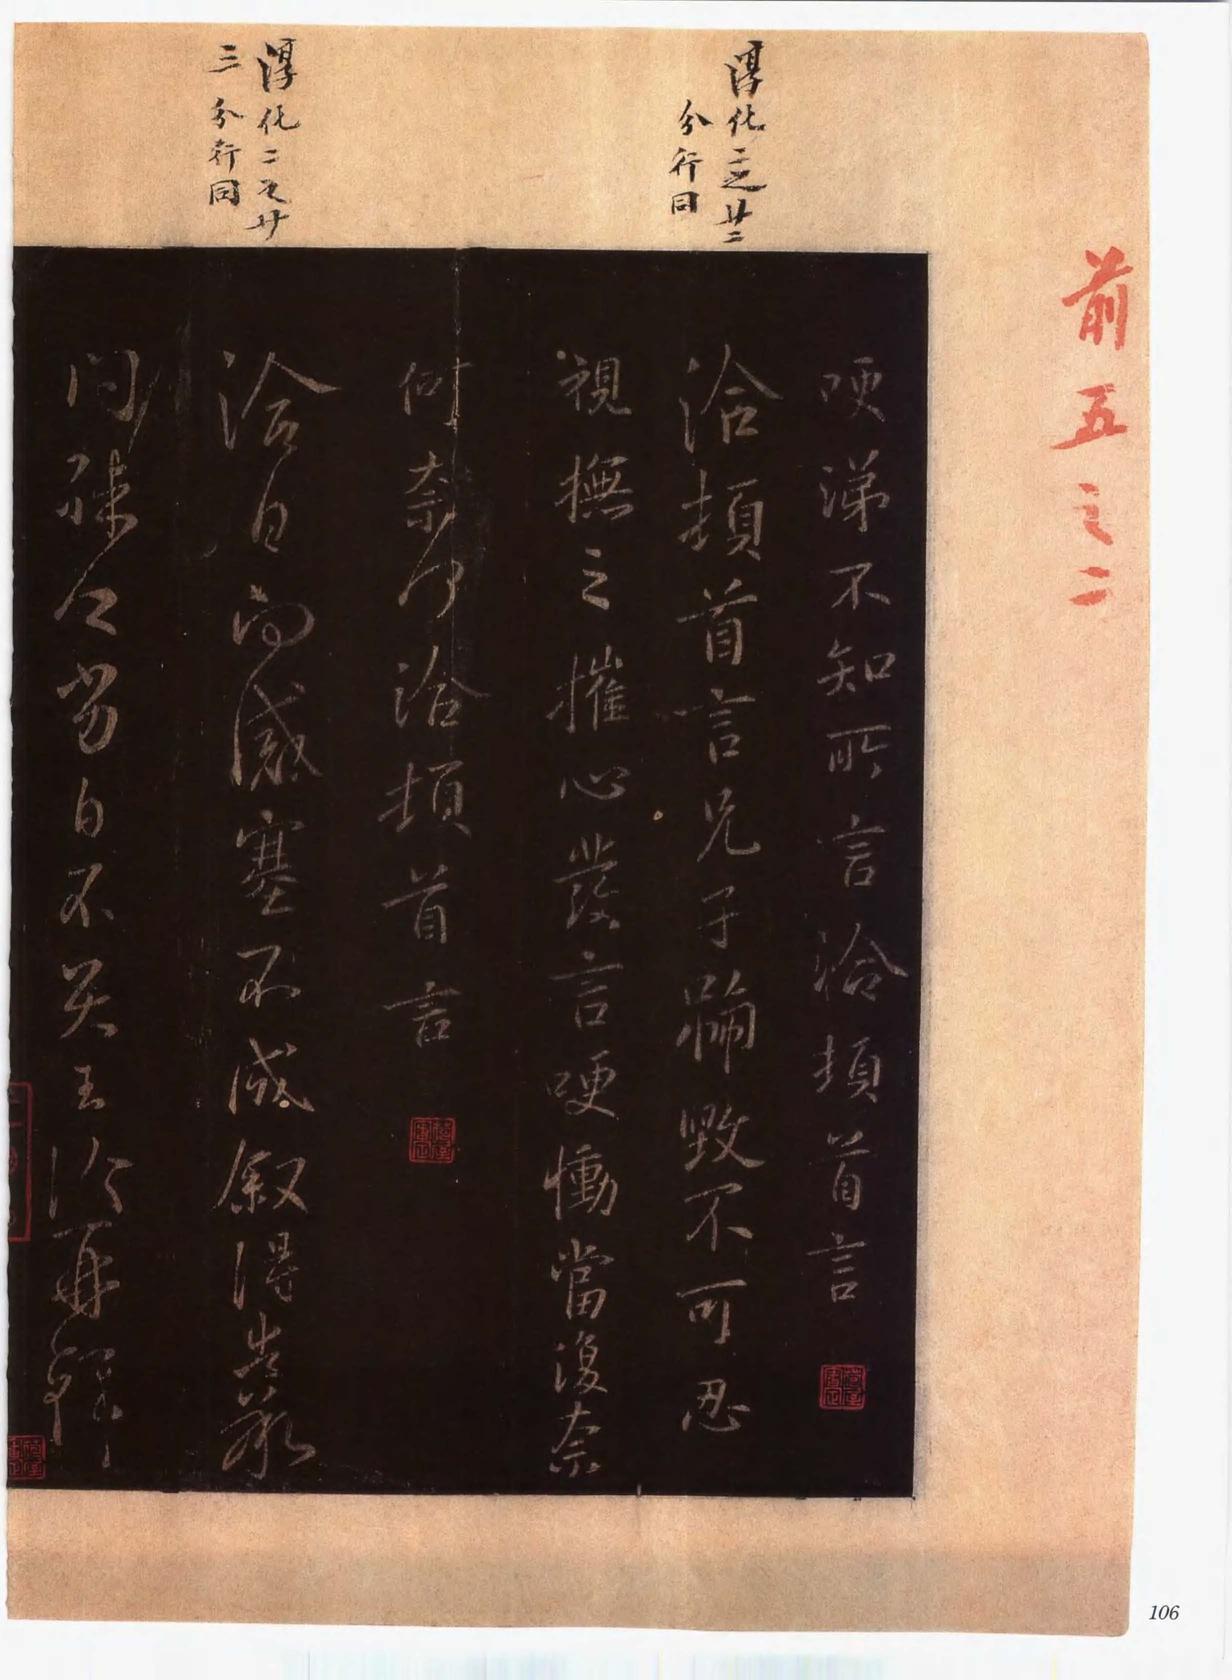 前五之二
淳化二之廿二
分行同
淳化二之廿
三分行同
哽涕不知所言洽頓首言
洽頓首言兄子號毀不可忍
視撫之摧心發言哽慟當復奈
何奈何洽頓首言
洽白
感塞不成叙得
不具王洽再拜
106